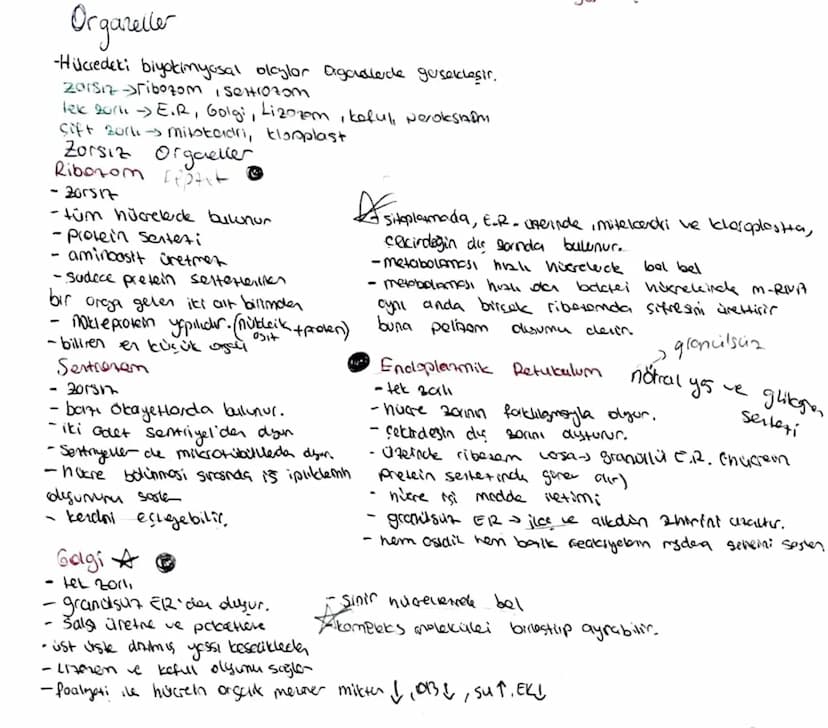 Organeller
-Hücredeki biyokimyasal olaylar organellerde gerçekleşir.
zarsız → ribozom, sentrozom
tek zarlı → E.R, Golgi, Lizozom, koful, peroksizom
çift zarlı → mitokondri, kloroplast
Zarsız Organeller
Ribozom
- zarsız
- tüm hücrelerde bulunur
- protein sentezi
- aminoasit üretmez
- sadece protein sentezlenirken
bir araya gelen iki alt birimden
- nükleoprotein yapılıdır. (nükleik asit + protein)
- bilinen en küçük organel
sitoplazmada, E.R. üzerinde, mitokondri ve kloroplastta,
çekirdeğin dış zarında bulunur.
- metabolizması hızlı hücrelerde bol bol
- metabolizması hızlı olan hücrelerinde m-RNA
aynı anda birçok ribozomda şifresini ürettirir
buna polizom oluşumu denir.
Sentrozom
- zarsız
- bazı ökaryotlarda bulunur.
- iki adet sentriyol'den oluşur
- Sentriyoller de mikrotübüllerden oluşur.
- hücre bölünmesi sırasında iğ ipliklerinin
oluşumunu sağlar
- kendini eşleyebilir.
Endoplazmik Retukulum
→ granülsüz
nötral yağ ve glikojen
sentezi
- tek zarlı
- hücre zarının farklılaşmasıyla oluşur.
- çekirdeğin dış zarını oluşturur.
- üzerinde ribozom varsa → granüllü E.R. (hücrenin
protein sentezinde görev alır)
- hücre içi madde iletimi
- granülsüz ER → ilaç ve alkolün zehrini azaltır.
- hem asidik hem bazik reaksiyonların aynı anda gerçekleşmesini sağlar
Golgi
- tek zarlı
- granülsüz ER'den oluşur.
- salgı üretme ve paketleme
- üst üste dizilmiş yassı keseciklerden
- Lizozom ve koful oluşumu sağlar
- faaliyeti ile hücrenin organik monomer miktarı ↓, OB ↓, su ↑, EK↓
- sinir hücrelerinde bol
kompleks molekülleri birleştirip ayırabilir.